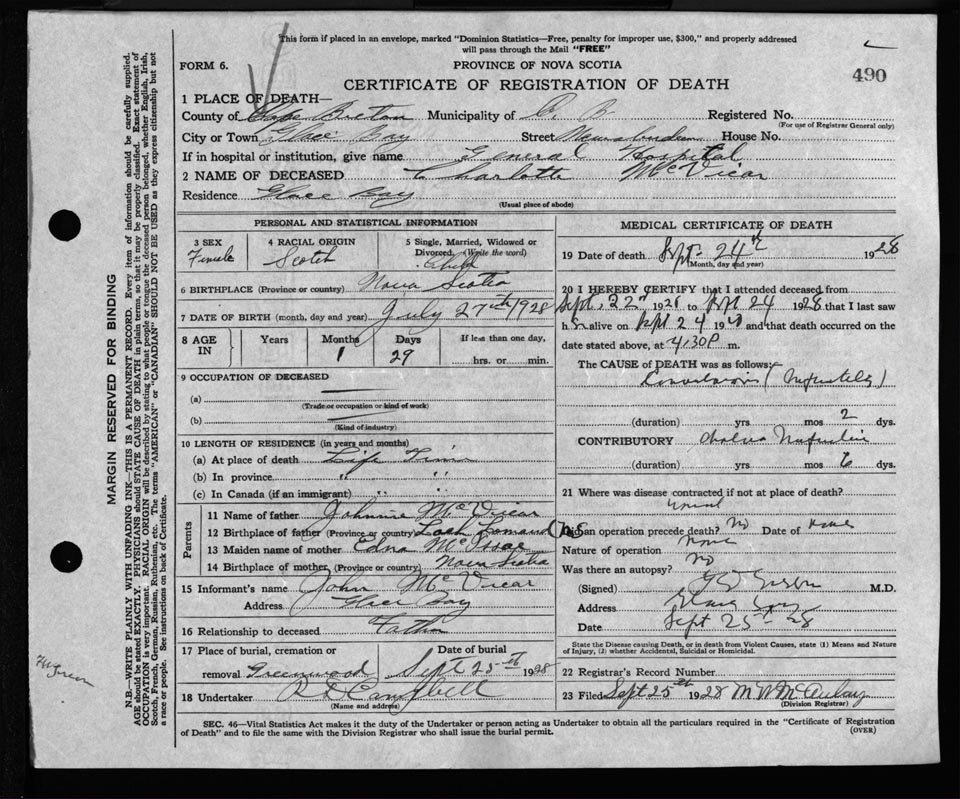 This form if placed in an envelope, marked "Dominion Statistics—Free, penalty for improper use, $300," and properly addressed
will pass through the Mail "FREE"
FORM 6. PROVINCE OF NOVA SCOTIA
CERTIFICATE OF REGISTRATION OF DEATH 490
1 PLACE OF DEATH—
County of Cape Breton Municipality of C. B. Registered No.
(For use of Registrar General only)
City or Town Glace Bay Street House No.
If in hospital or institution, give name General Hospital
2 NAME OF DECEASED Charlotte McVicar
Residence Glace Bay
(Usual place of abode)
PERSONAL AND STATISTICAL INFORMATION
3 SEX 4 RACIAL ORIGIN 5 Single, Married, Widowed or Divorced, (Write the word)
Female Scotch Child
6 BIRTHPLACE (Province or country) Nova Scotia
7 DATE OF BIRTH (month, day and year) July 27th 1928
8 AGE IN Years Months Days If less than one day,
1 29 hrs. or min.
9 OCCUPATION OF DECEASED
(a)
(Trade or occupation or kind of work)
(b)
(Kind of industry)
10 LENGTH OF RESIDENCE (in years and months)
(a) At place of death Life Time
(b) In province " "
(c) In Canada (if an immigrant) " "
Parents
11 Name of father Johnnie McVicar
12 Birthplace of father (Province or country) Loch Lomand C B NS
13 Maiden name of mother Edna McIsaac
14 Birthplace of mother (Province or country) Nova Scotia
15 Informant's name John McVicar
Address Glace Bay
16 Relationship to deceased Father
17 Place of burial, cremation or removal Greenwood Date of burial Sept 25th 1928
18 Undertaker Campbell
(Name and address)
MEDICAL CERTIFICATE OF DEATH
19 Date of death Sept. 24th 1928
(Month, day and year)
20 I HEREBY CERTIFY that I attended deceased from
Sept. 22nd 1928 to Sept 24 1928 that I last saw
h alive on Sept 24 19 and that death occurred on the
date stated above, at 4.30 P m.
The CAUSE of DEATH was as follows:—
Convulsions
(duration) yrs mos 2 dys.
CONTRIBUTORY Cholera Infantum
(duration) yrs mos 6 dys.
21 Where was disease contracted if not at place of death?
Did an operation precede death? No Date of None
Nature of operation None
Was there an autopsy? No
(Signed) M.D.
Address Glace Bay
Date Sept 25th 28
State the Disease causing Death, or in death from Violent Causes, state (1) Means and
Nature of Injury, (2) whether Accidental, Suicidal or Homicidal.
22 Registrar's Record Number
23 Filed Sept 25th 1928 McAulay
(Division Registrar)
SEC. 46—Vital Statistics Act makes it the duty of the Undertaker or person acting as Undertaker to obtain all the particulars required in the "Certificate of Registration
of Death" and to file the same with the Division Registrar who shall issue the burial permit. (OVER)
MARGIN RESERVED FOR BINDING
N.B—WRITE PLAINLY WITH UNFADING INK—THIS IS A PERMANENT RECORD. Every item of information should be carefully supplied.
AGE should be stated EXACTLY. PHYSICIANS should STATE CAUSE OF DEATH in plain terms, so that it may be properly classified. Exact statement of
OCCUPATION is very important. RACIAL ORIGIN will be described by stating to what people or tongue the deceased person belonged, whether English, Irish,
Scotch, French, German, Russian, Ruthenian, etc. The terms "AMERICAN" or "CANADIAN" SHOULD NOT BE USED as they express citizenship but not
a race or people. See instructions on back of Certificate.